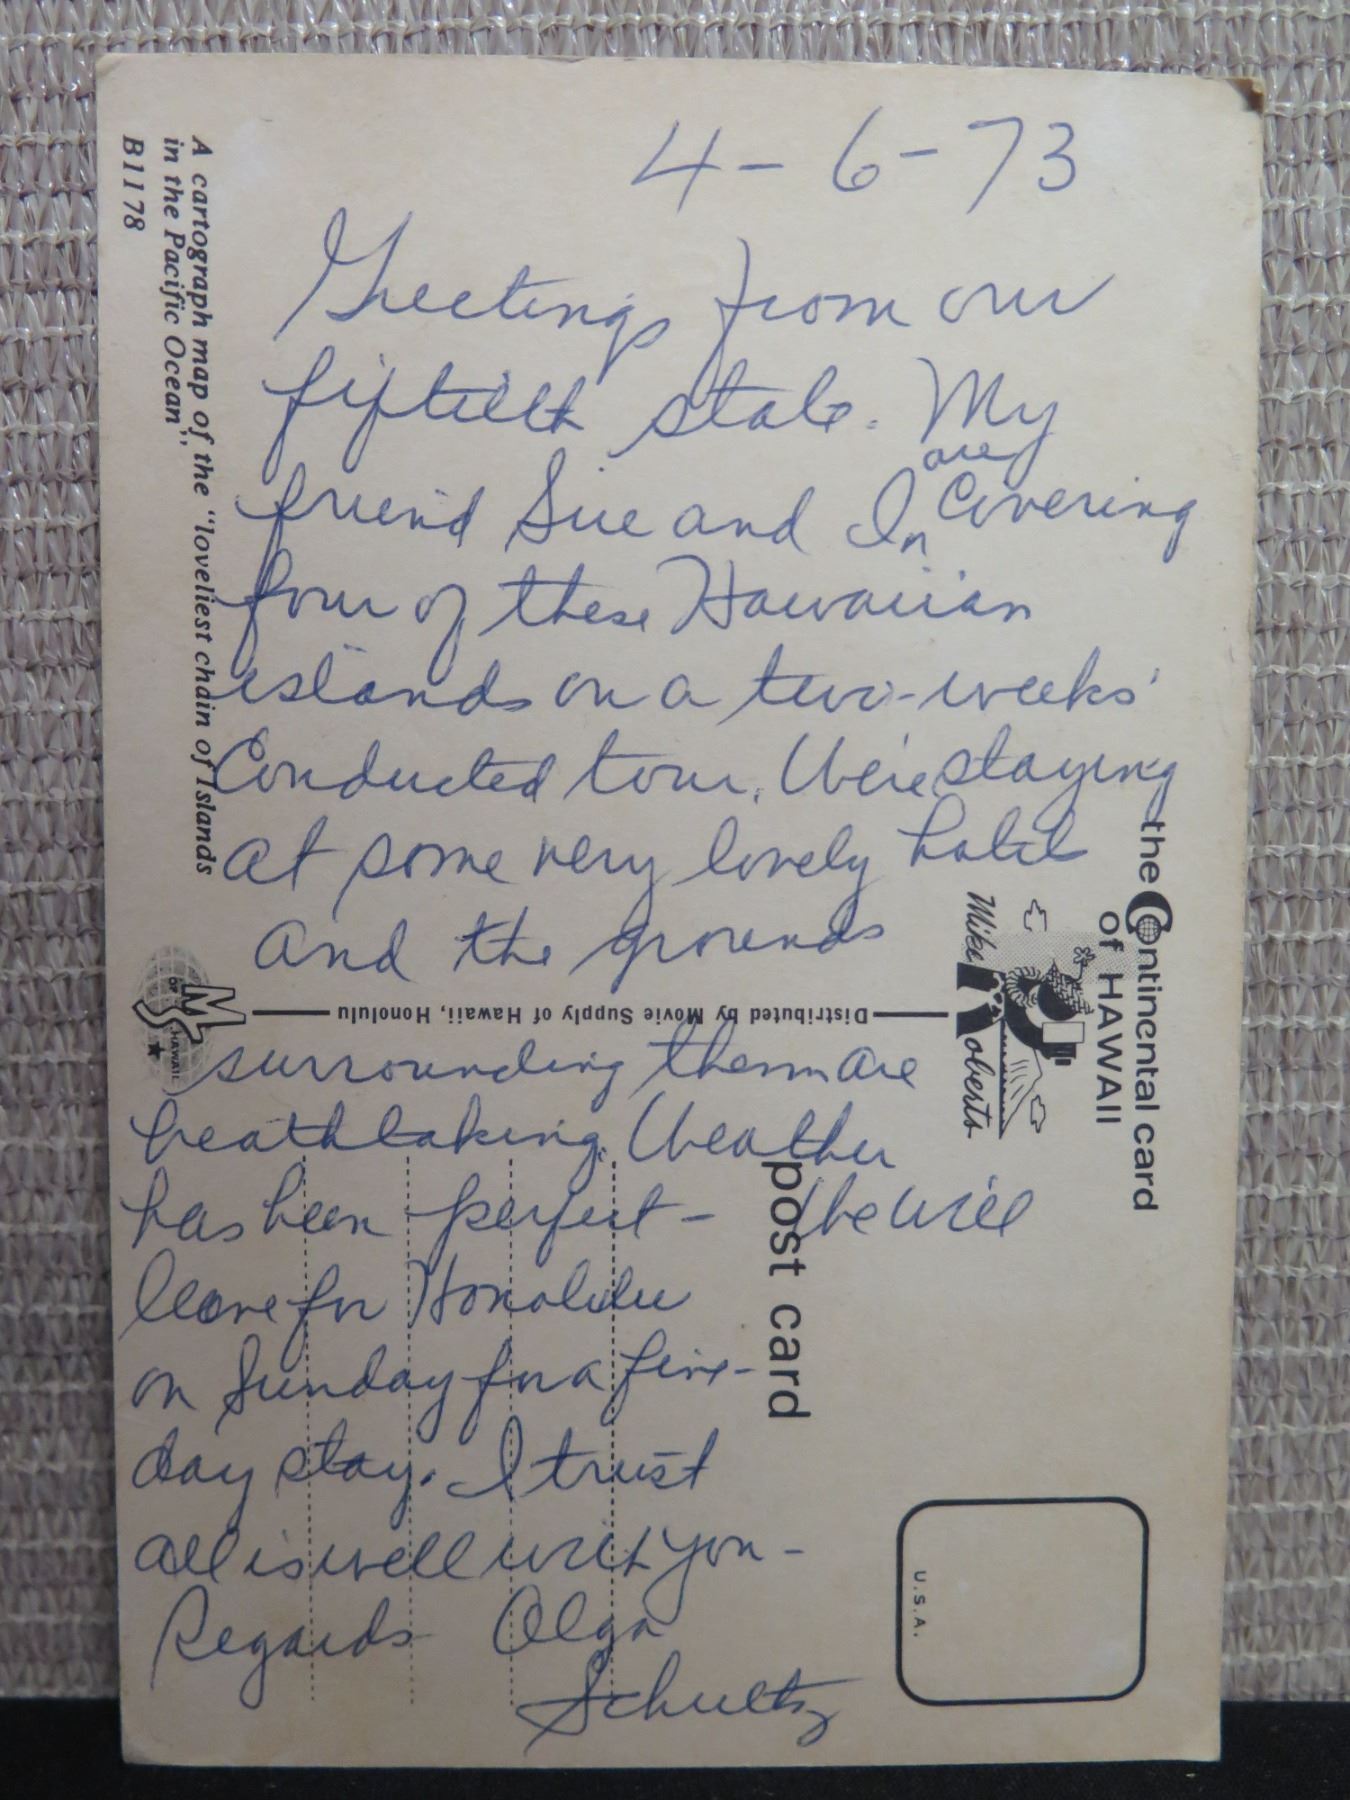 4-6-73
Greetings from our
fiftieth state. My
friend Sue and I are covering
four of these Hawaiian
islands on a two-weeks'
Conducted tour. We're staying
at some very lovely hotels
and the grounds
surrounding them are
breathtaking. Weather
has been perfect - We will
leave for Honolulu
on Sunday for a five-
day stay. I trust
all is well with you -
Regards Olga
Schultz
A cartograph map of the "loveliest chain of Islands
in the Pacific Ocean".
B1178
Distributed by Movie Supply of Hawaii, Honolulu
MS
OF HAWAII
the Continental card
of HAWAII
Mike Roberts
post card
U.S.A.